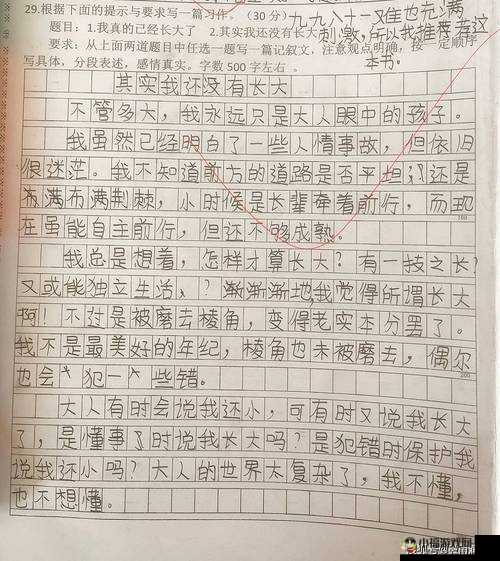 29.根据下面的提示与要求写一篇习作。(30分)
九九八十一难也充满
题目:1.我真的已经长大了 2.其实我还没有长大
刺激,所以我推荐看这
要求:从上面两道题目中任选一题写一篇记叙文,注意观点明确,按一定顺序
本书。
写具体,分段表述,感情真实。字数500字左右。
其实我还没有长大
不管多大,我永远只是大人眼中的孩子。
我虽然已经明白了一些人情事故,但依旧
很迷茫。我不知道前方的道路是否平坦 还是
布满布满荆棘,小时候是长辈牵着前行,而现
在虽能自主前行,但还不够成熟。
160
我总是想着,怎样才算长大?有一技之长?
又或能独立生活、?渐渐渐地,我觉得所谓长大
啊!不过是被磨去棱角,变得老实本分罢了。
我不是最美好的年纪,棱角也未被磨去,偶尔
也会 犯一 些错。
200
大人有时会说我还小,可有时又说我长大
了,是懂事了时说我长大吗?是犯错时保护我
说我还小吗?大人的世界太复杂了,我不懂,
也不想懂。
小福游戏网